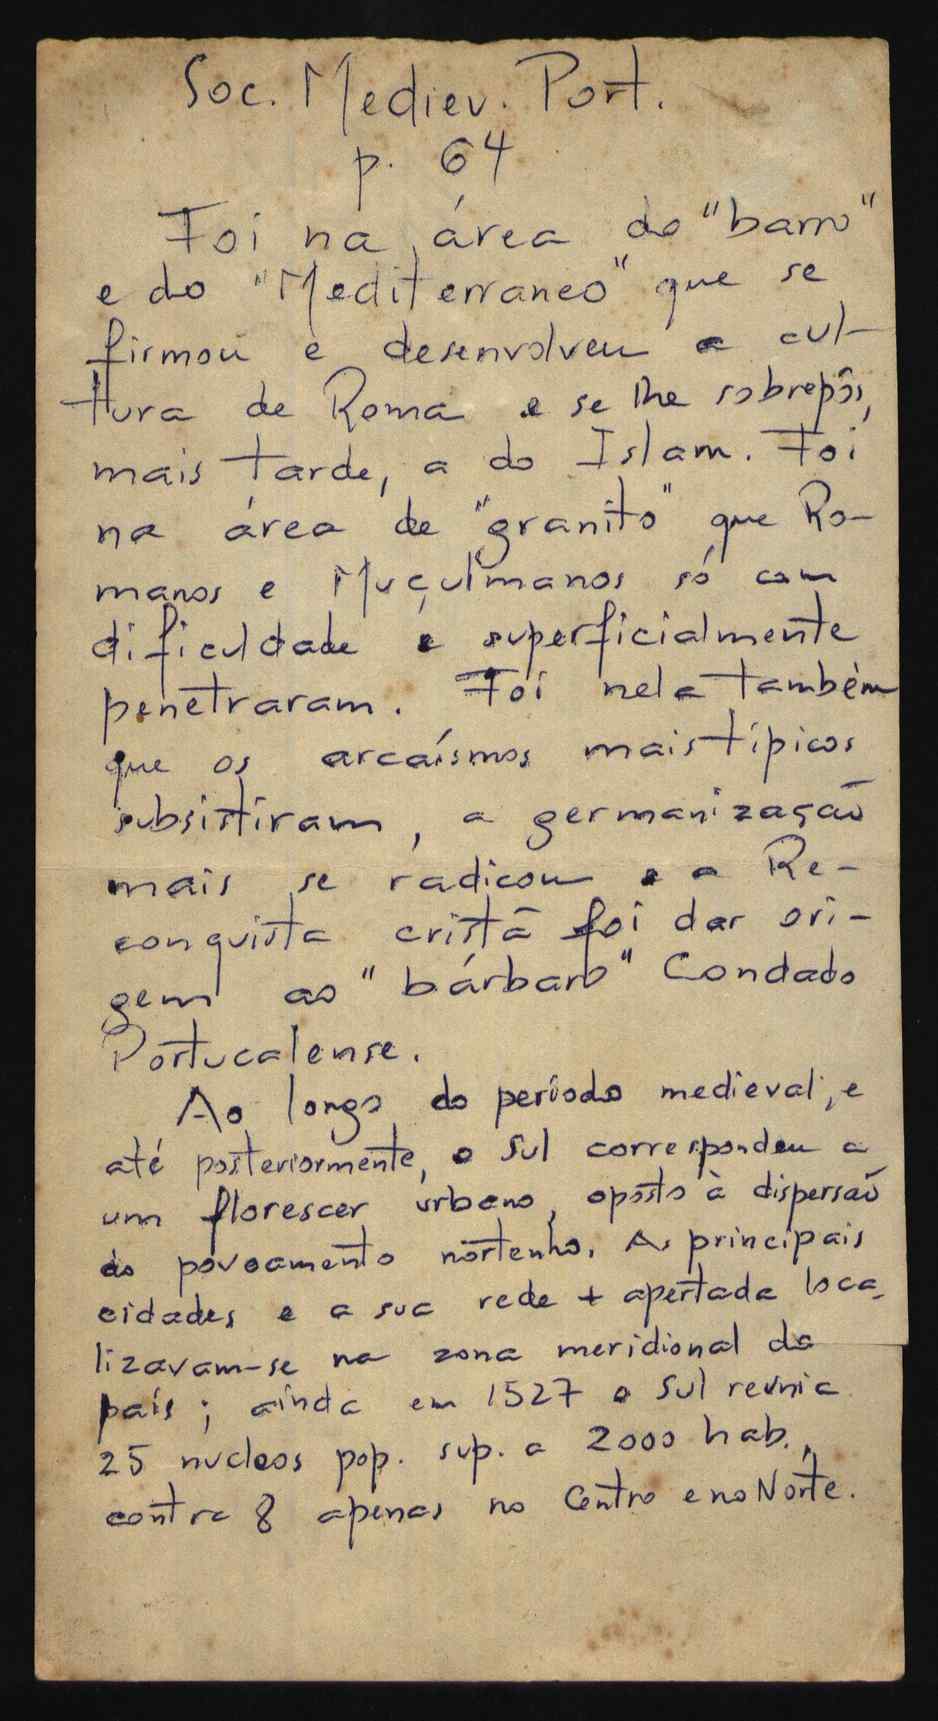 Soc. Mediev. Port.
p. 64
Foi na área do "barro"
e do "Mediterraneo" que se
firmou e desenvolveu a cul-
tura de Roma e se lhe sobrepôs,
mais tarde, a do Islam. Foi
na área de "granito" que Ro-
manos e Muçulmanos só com
dificuldade e superficialmente
penetraram. Foi nela também
que os arcaísmos mais típicos
subsistiram, a germanização
mais se radicou e a Re-
conquista cristã foi dar ori-
gem ao "bárbaro" Condado
Portucalense.
Ao longo do período medieval, e
até posteriormente, o Sul correspondeu a
um florescer urbano, oposto à dispersão
do povoamento nortenho. As principais
cidades e a sua rede + apertada loca-
lizavam-se na zona meridional do
país; ainda em 1527 o Sul reunia
25 nucleos pop. sup. a 2000 hab.,
contra 8 apenas no Centro e no Norte.